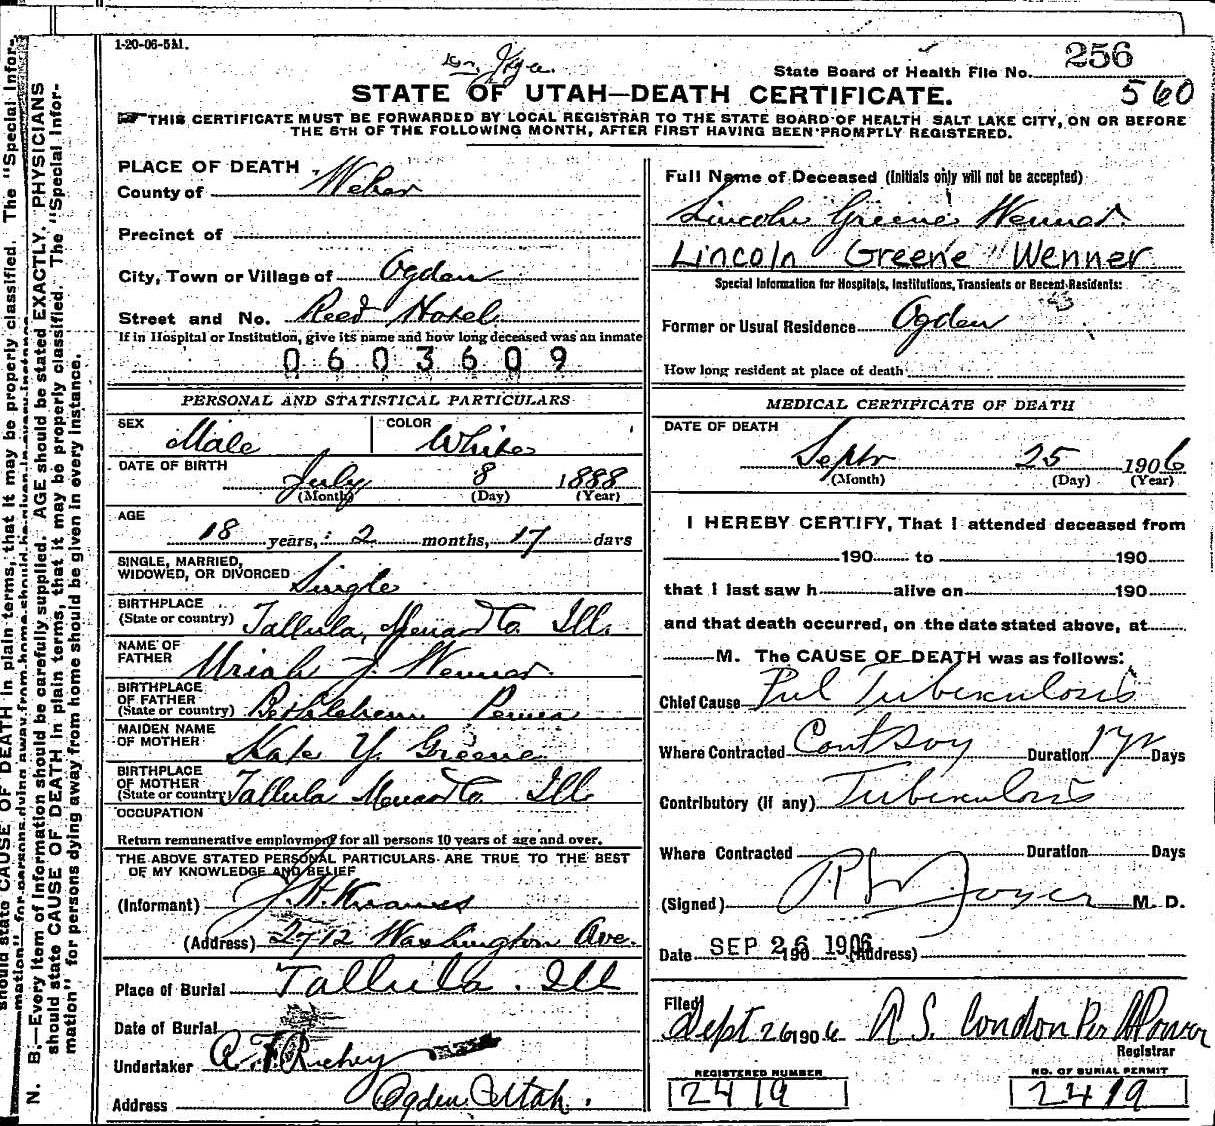 1-20-06-5M.
State Board of Health File No. 256
STATE OF UTAH—DEATH CERTIFICATE. 560
THIS CERTIFICATE MUST BE FORWARDED BY LOCAL REGISTRAR TO THE STATE BOARD OF HEALTH SALT LAKE CITY, ON OR BEFORE
THE 5TH OF THE FOLLOWING MONTH, AFTER FIRST HAVING BEEN PROMPTLY REGISTERED.
PLACE OF DEATH
County of Weber
Precinct of
City, Town or Village of Ogden
Street and No. Reed Hotel
If in Hospital or Institution, give its name and how long deceased was an inmate
0603609
PERSONAL AND STATISTICAL PARTICULARS
SEX Male COLOR White
DATE OF BIRTH July 8 1888
(Month) (Day) (Year)
AGE
18 years, 2 months, 17 days
SINGLE, MARRIED,
WIDOWED, OR DIVORCED Single
BIRTHPLACE
(State or country) Tallula, Menard Co. Ill.
NAME OF
FATHER Uriah J. Wenner.
BIRTHPLACE
OF FATHER
(State or country) Bethlehem Penna
MAIDEN NAME
OF MOTHER Kate Y. Greene
BIRTHPLACE
OF MOTHER
(State or country) Tallula Menard Co. Ill
OCCUPATION
Return remunerative employment for all persons 10 years of age and over.
THE ABOVE STATED PERSONAL PARTICULARS ARE TRUE TO THE BEST
OF MY KNOWLEDGE AND BELIEF
(Informant) J. H.
(Address) 2712 Washington Ave.
Place of Burial Tallula. Ill
Date of Burial
Undertaker Richey
Address Ogden Utah.
Full Name of Deceased (Initials only will not be accepted)
Lincoln Greene Wenner.
Lincoln Greene Wenner
Special Information for Hospitals, Institutions, Transients or Recent Residents:
Former or Usual Residence Ogden
How long resident at place of death
MEDICAL CERTIFICATE OF DEATH
DATE OF DEATH
Septr 25 1906
(Month) (Day) (Year)
I HEREBY CERTIFY, That I attended deceased from
190 to 190
that I last saw h alive on 190
and that death occurred, on the date stated above, at
M. The CAUSE OF DEATH was as follows:
Chief Cause Pul Tuberculosis
Where Contracted Duration 1 yr Days
Contributory (if any) Tuberculosis
Where Contracted Duration Days
(Signed) Joyce M. D.
Date SEP 26 1906 190 (Address)
Filed
Sept 26 1906 R S. Condon Per
Registrar
REGISTERED NUMBER
2419
NO. OF BURIAL PERMIT
2419
N. B.—Every item of information should be carefully supplied. AGE should be stated EXACTLY. PHYSICIANS
should state CAUSE OF DEATH in plain terms, that it may be properly classified. The "Special Infor-
mation" for persons dying away from home should be given in every instance.